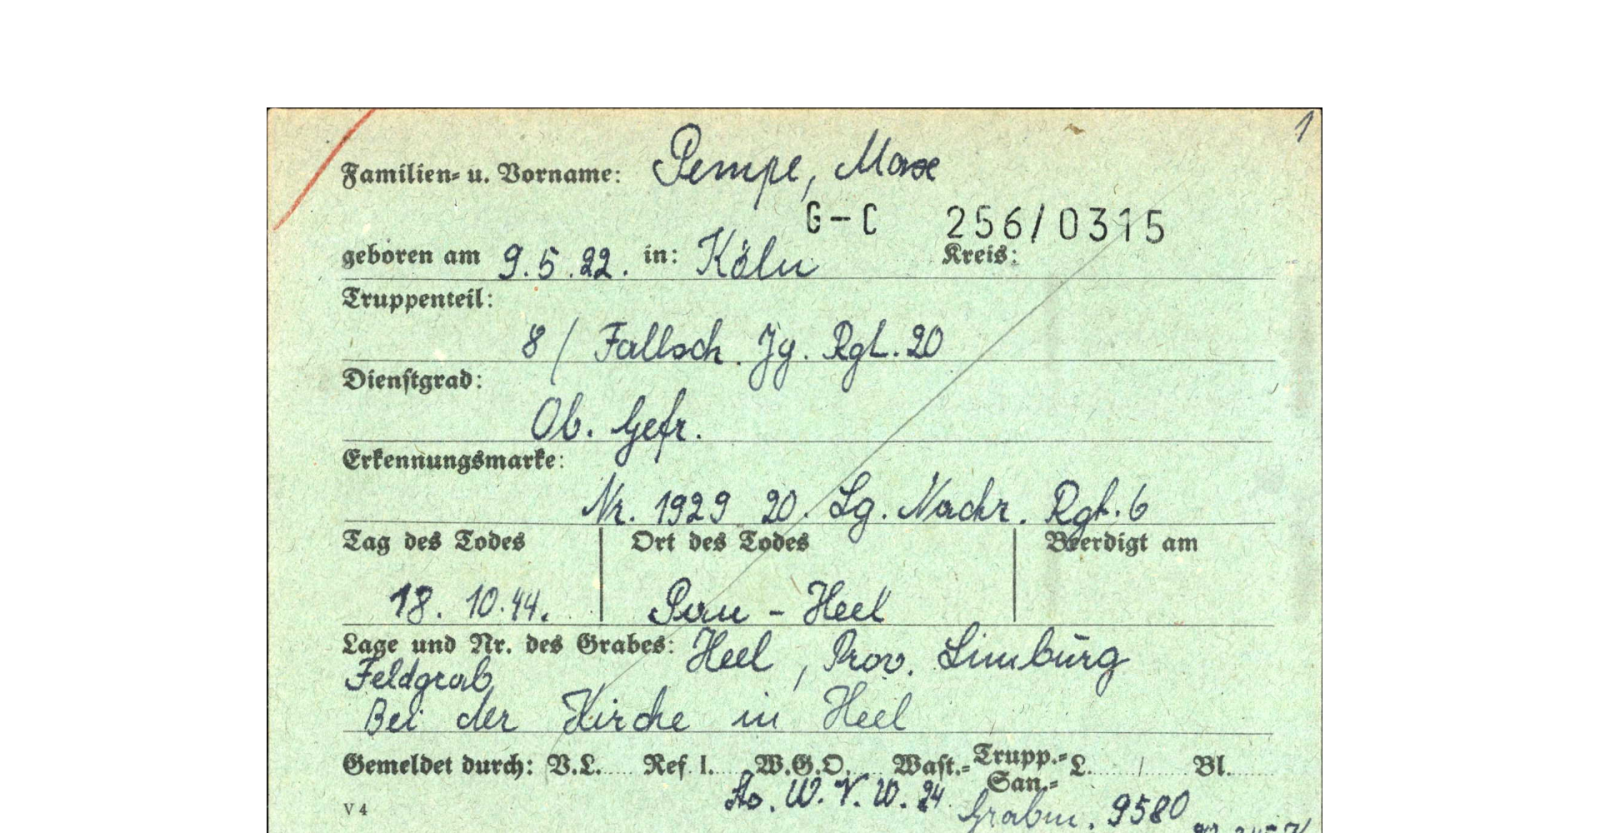 1
Familien- u. Vorname: Pempe, Max
G-C 256/0315
geboren am 9.5.22. in: Köln Kreis:
Truppenteil:
8/ Fallsch. Jg. Rgt. 20
Dienstgrad:
Ob. Gefr.
Erkennungsmarke:
Nr. 1929 20. Lg. Nachr. Rgt. 6
Tag des Todes Ort des Todes Beerdigt am
18. 10.44. - Heel
Lage und Nr. des Grabes: Heel, Prov. Limburg
Feldgrab
Bei der Kirche in Heel
Gemeldet durch: V.L. Ref. I. W.G.O. Wast.- Trupp.- L. / Bl.
San.-
W. V. W. 24 Grabm. 9580
V 4